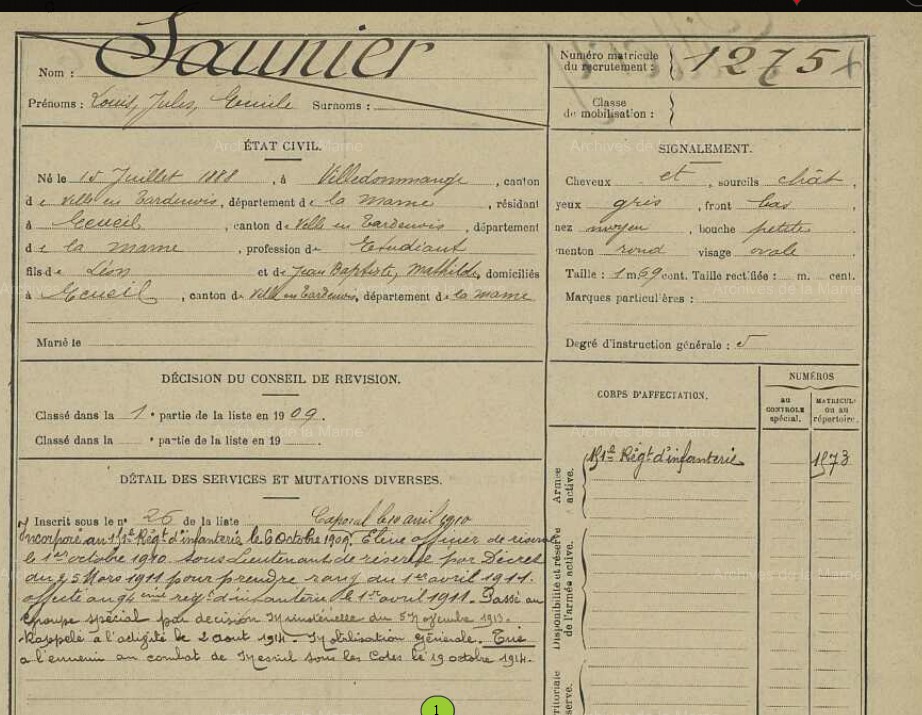 Nom : Saunier
Prénoms : Louis, Jules, Emile Surnoms :
Numéro matricule
du recrutement : 1275
Classe
de mobilisation :
ÉTAT CIVIL.
Né le 15 Juillet 1888, à Villedommange, canton
de Ville en Tardenois, département de la Marne, résidant
à Ecueil, canton de Ville en Tardenois, département
de la Marne, profession de Etudiant
fils de Léon et de Jean Baptiste, Mathilde, domiciliés
à Ecueil, canton de Ville en Tardenois, département de la Marne
Marié le
SIGNALEMENT.
Cheveux et, sourcils chât,
yeux gris, front bas
nez moyen, bouche petite
menton rond visage ovale
Taille : 1 m 69 cent. Taille rectifiée : m. cent.
Marques particulières :
Degré d'instruction générale : 5
DÉCISION DU CONSEIL DE REVISION.
Classé dans la 1e partie de la liste en 1909.
Classé dans la e partie de la liste en 19
DÉTAIL DES SERVICES ET MUTATIONS DIVERSES.
Inscrit sous le n° 26 de la liste Caporal le 10 avril 1910
Incorporé au Régt d'infanterie le 6 Octobre 1909. Elève officier de réserve
le 1er octobre 1910. Sous Lieutenant de réserve par Décret
du 25 Mars 1911 pour prendre rang du 1er avril 1911.
affecté au régt d'infanterie le 1er avril 1911. Passé au
groupe spécial par décision Ministérielle du 5 Novembre 1913.
Rappelé à l'activité le 2 aout 1914. Mobilisation Générale. Tué
a l'ennemi au combat de Mesnil sous les Cotes le 19 octobre 1914.
CORPS D'AFFECTATION.
NUMÉROS
au
contrôle
spécial.
matricule
ou au
répertoire.
Armée
active.
Régt d'infanterie 1873
Disponibilité et réserve
de l'armée active.
1
Archives de la Marne